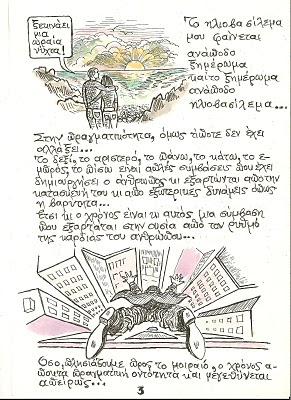 Ξεκινάει
μια
ωραία
νύχτα!
Το ηλιοβασίλεμα
μου φαίνεται
ανάποδο
ξημέρωμα
και το ξημέρωμα
ανάποδο
ηλιοβασίλεμα...
Στην πραγματικότητα, όμως τίποτε δεν έχει
αλλάξει...
το δεξί, το αριστερό, το πάνω, το κάτω, το ε-
μπρός, το πίσω είναι απλές συμβάσεις που έχει
δημιουργήσει ο άνθρωπος κι εξαρτώνται από την
κατασκευή του κι από εξωτερικές δυνάμεις όπως
η βαρύτητα...
Έτσι κι ο χρόνος είναι κι αυτός μια σύμβαση
που εξαρτάται στην ουσία από τον ρυθμό
της καρδιάς του ανθρώπου...
Όσο πλησιάζουμε προς το μοιραίο, ο χρόνος α-
ποκτά πραγματική οντότητα και μεγεθύνεται
απείρως...
3